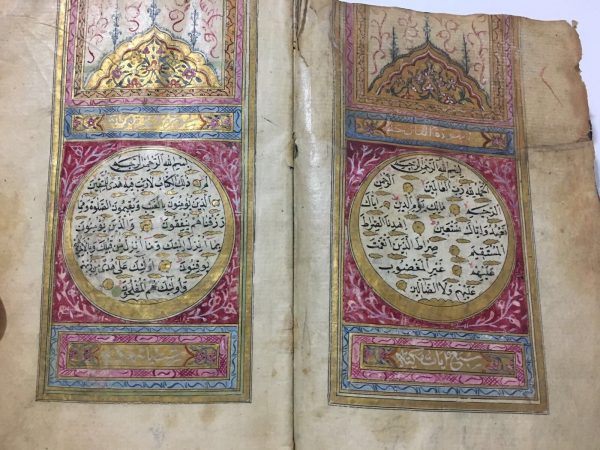 سورة الفاتحة
بسم الله الرحمن الرحيم
الحمد لله رب العالمين الرحمن
الرحيم مالك يوم الدين اياك
نعبد واياك نستعين اهدنا الصراط
المستقيم صراط الذين انعمت
عليهم غير المغضوب
عليهم ولا الضالين
سبع ايات
بسم الله الرحمن الرحيم
الم ذلك الكتاب لا ريب فيه هدى للمتقين
الذين يؤمنون بالغيب ويقيمون الصلوة ومما
رزقناهم ينفقون والذين يؤمنون
بما انزل اليك وما انزل من قبلك وبالاخرة هم
يوقنون اولئك على هدى من ربهم
واولئك هم المفلحون